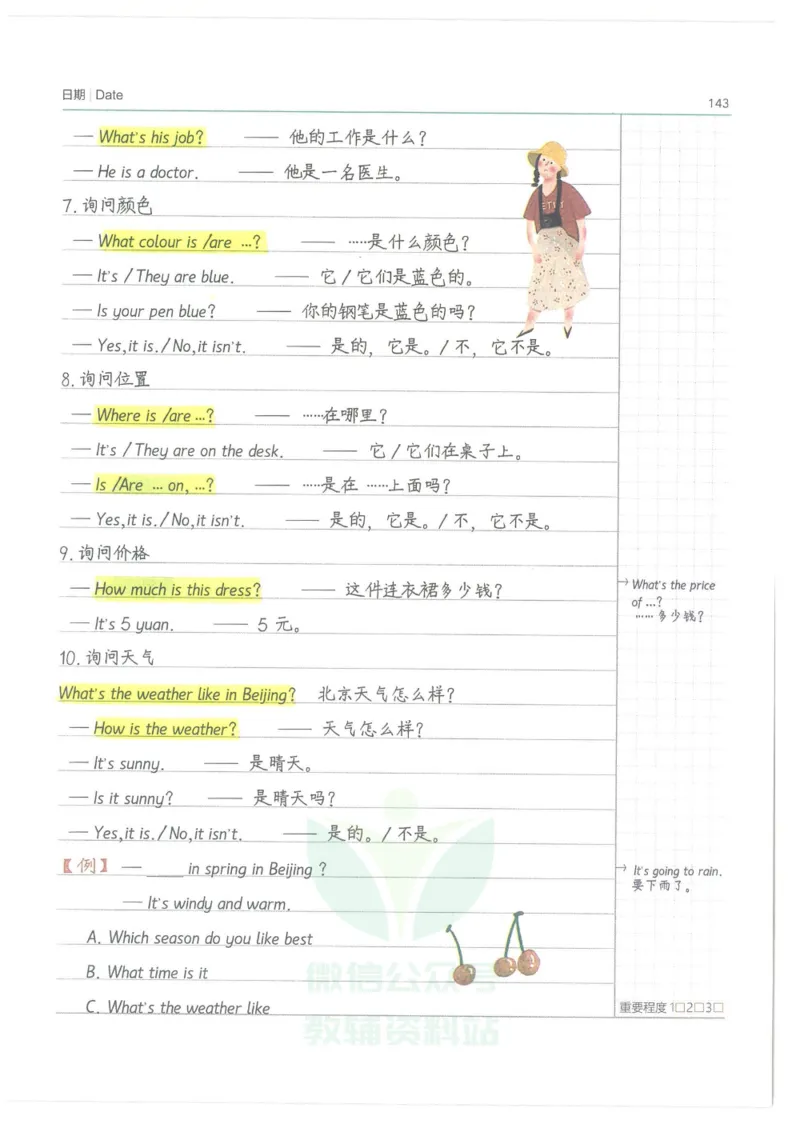 日期 | Date
143
— What's his job? —— 他的工作是什么?
— He is a doctor. —— 他是一名医生。
7. 询问颜色
— What colour is /are ...? —— ······是什么颜色?
— It's / They are blue. —— 它 / 它们是蓝色的。
— Is your pen blue? —— 你的钢笔是蓝色的吗?
— Yes,it is. / No,it isn't. —— 是的，它是。/ 不，它不是。
8. 询问位置
— Where is /are ...? —— ······在哪里?
— It's / They are on the desk. —— 它 / 它们在桌子上。
— Is /Are ... on, ...? —— ······是在 ······上面吗?
— Yes,it is. / No,it isn't. —— 是的，它是。/ 不，它不是。
9. 询问价格
— How much is this dress? —— 这件连衣裙多少钱?
→ What's the price
of ...?
······ 多少钱?
— It's 5 yuan. —— 5 元。
10. 询问天气
What's the weather like in Beijing? 北京天气怎么样?
— How is the weather? —— 天气怎么样?
— It's sunny. —— 是晴天。
— Is it sunny? —— 是晴天吗?
— Yes,it is. / No,it isn't. —— 是的。/ 不是。
【例】 — ____ in spring in Beijing ?
→ It's going to rain.
要下雨了。
— It's windy and warm.
A. Which season do you like best
B. What time is it
C. What's the weather like
微信公众号
教辅资料站
重要程度 1□2□3□